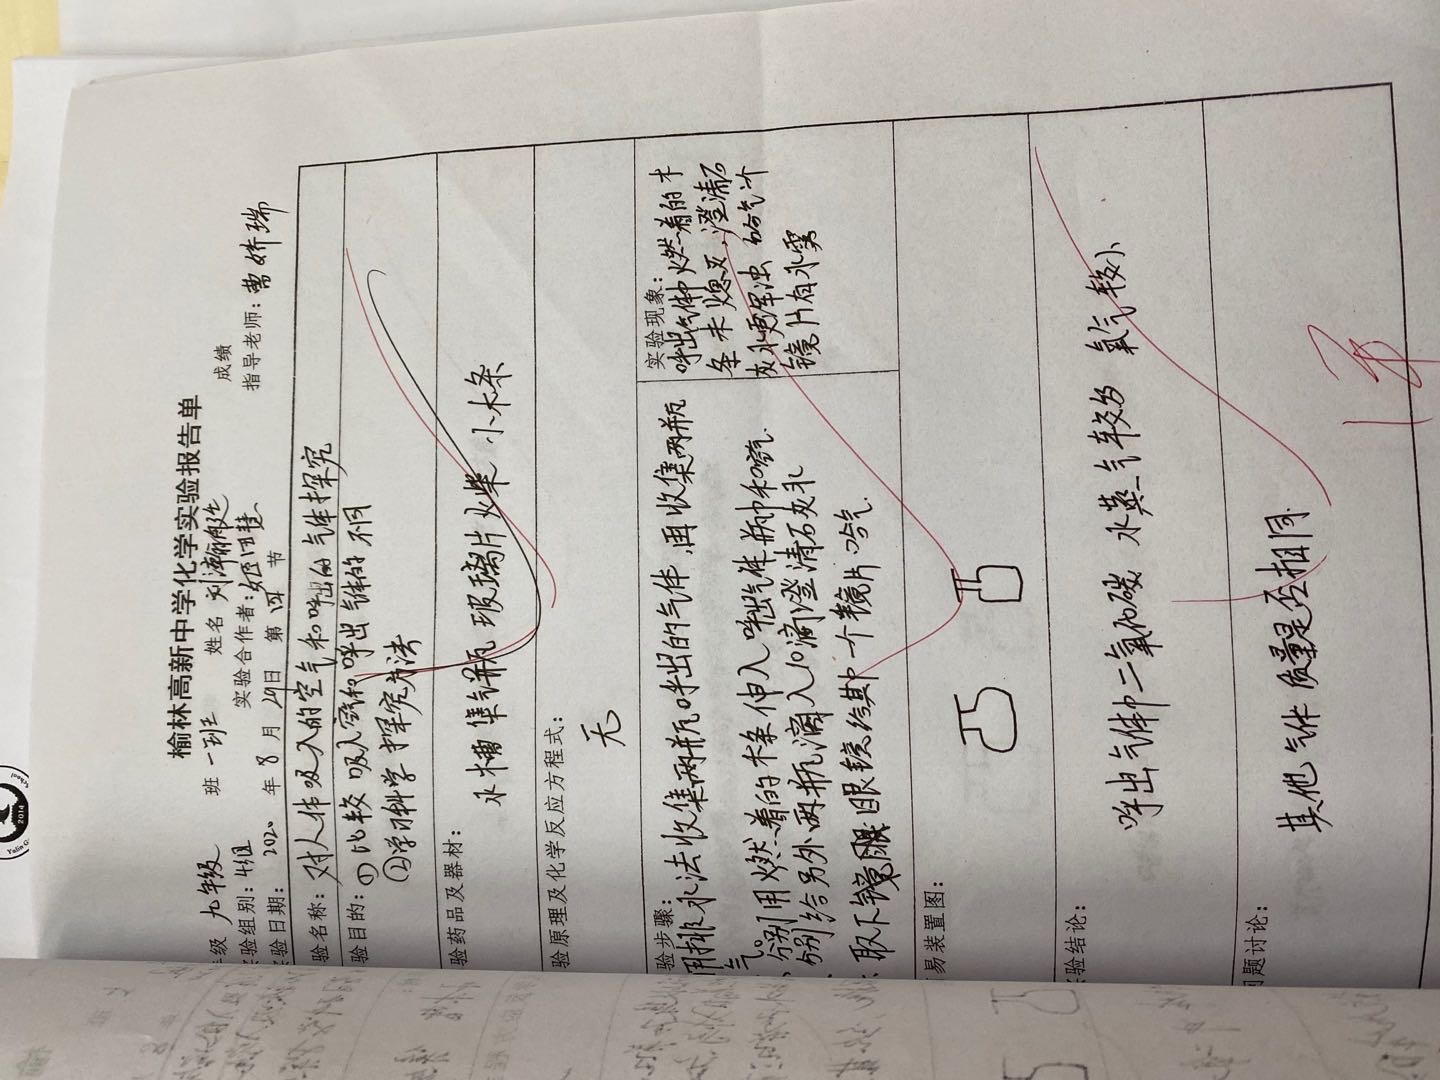 榆林高新中学化学实验报告单
级 九年级 班 一班 姓名 刘瀚
成绩
验组别: 4组 实验合作者:
指导老师:
验日期: 2020 年 8 月 29 日 第 四 节
验名称: 对人体吸入的空气和呼出的气体探究
验目的: ①比较吸入空气和呼出气体的不同
②学习科学探究方法
验药品及器材:
水槽 集气瓶 玻璃片 火柴 小木条
验原理及化学反应方程式:
无
验步骤:
用排水法收集两瓶呼出的气体,再收集两瓶
气
分别用燃着的木条伸入呼出气体瓶中和空气.
分别给另外两瓶滴入10滴澄清石灰水
取下镜 眼镜给其中一个镜片哈气.
实验现象:
呼出气体中燃着的木
条未熄灭,澄清石
灰水更浑浊 哈气让
镜片有水雾
易装置图:
验结论:
呼出气体中二氧化碳,水蒸气较多 氧气较小
问题讨论:
其他气体质量是否相同
2014